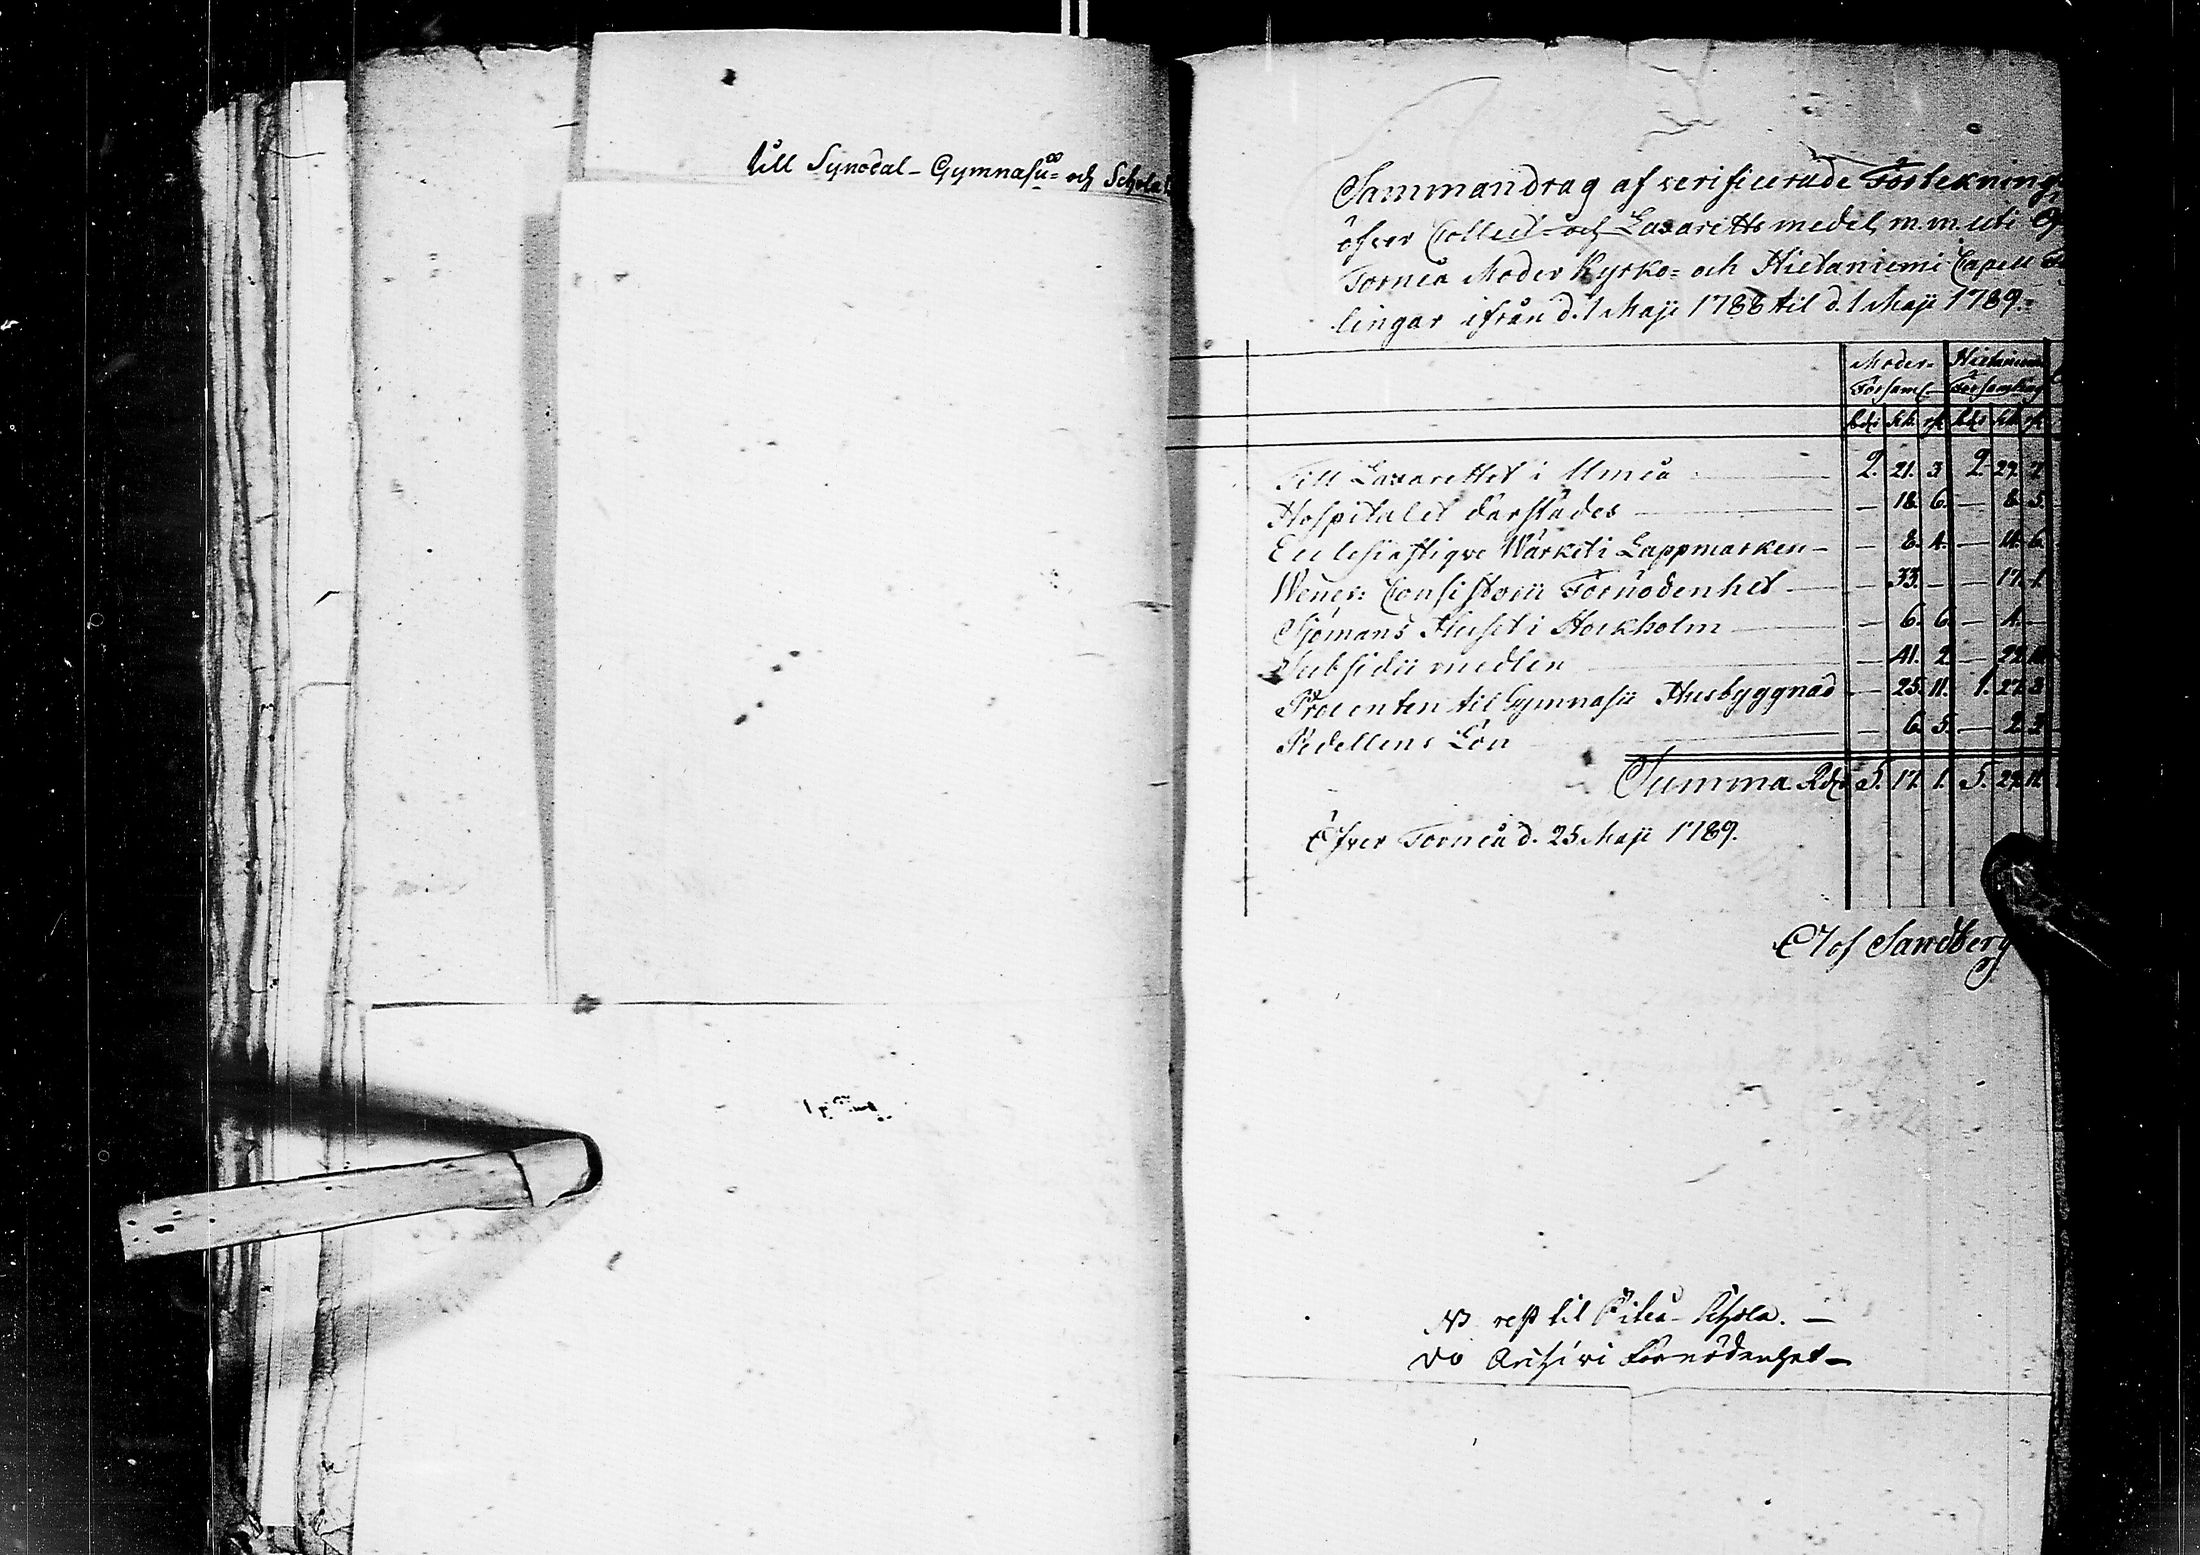 till Synodal- Gymnasii= och Schola
Sammandrag af verificerade Förtekning
öfver Collect- och Lazaretts medel, m.m. uti Öf
Torneå Moder Kyrko= och Hietaniemi Capell
lingar ifrån d. 1 Maji 1788 til d. 1 Maji 1789.
Moder- Hietaniemi
Församl. Församling
Rdr sk. rst Rdr sk. rst
Till Lazarettet i Umeå 2. 21. 3. 2. 29.
Hospitalet därstädes — 18. 6. — 8. 5.
Ecclesiastiqve Wärket i Lappmarken — 8. 4. — 11. 6.
Vener: Consistorii Förnödenhet — 33. — — 17. 1.
Sjömans Huset i Stockholm — 6. 6. — 4. —
Subsidii medlen — 41. 2.
Procenten til Gymnasii Husbyggnad — 25. 11. 1. 27. 3.
Pedellens Lön — 6. 5. — 2.
Summa Rdr 5. 17. 1. 5. 29. 11.
Öfver Torneå d. 25 Maji 1789.
Olof Sandberg
NB rest til Piteå Schola. —
Do Archivi Förnödenhet —